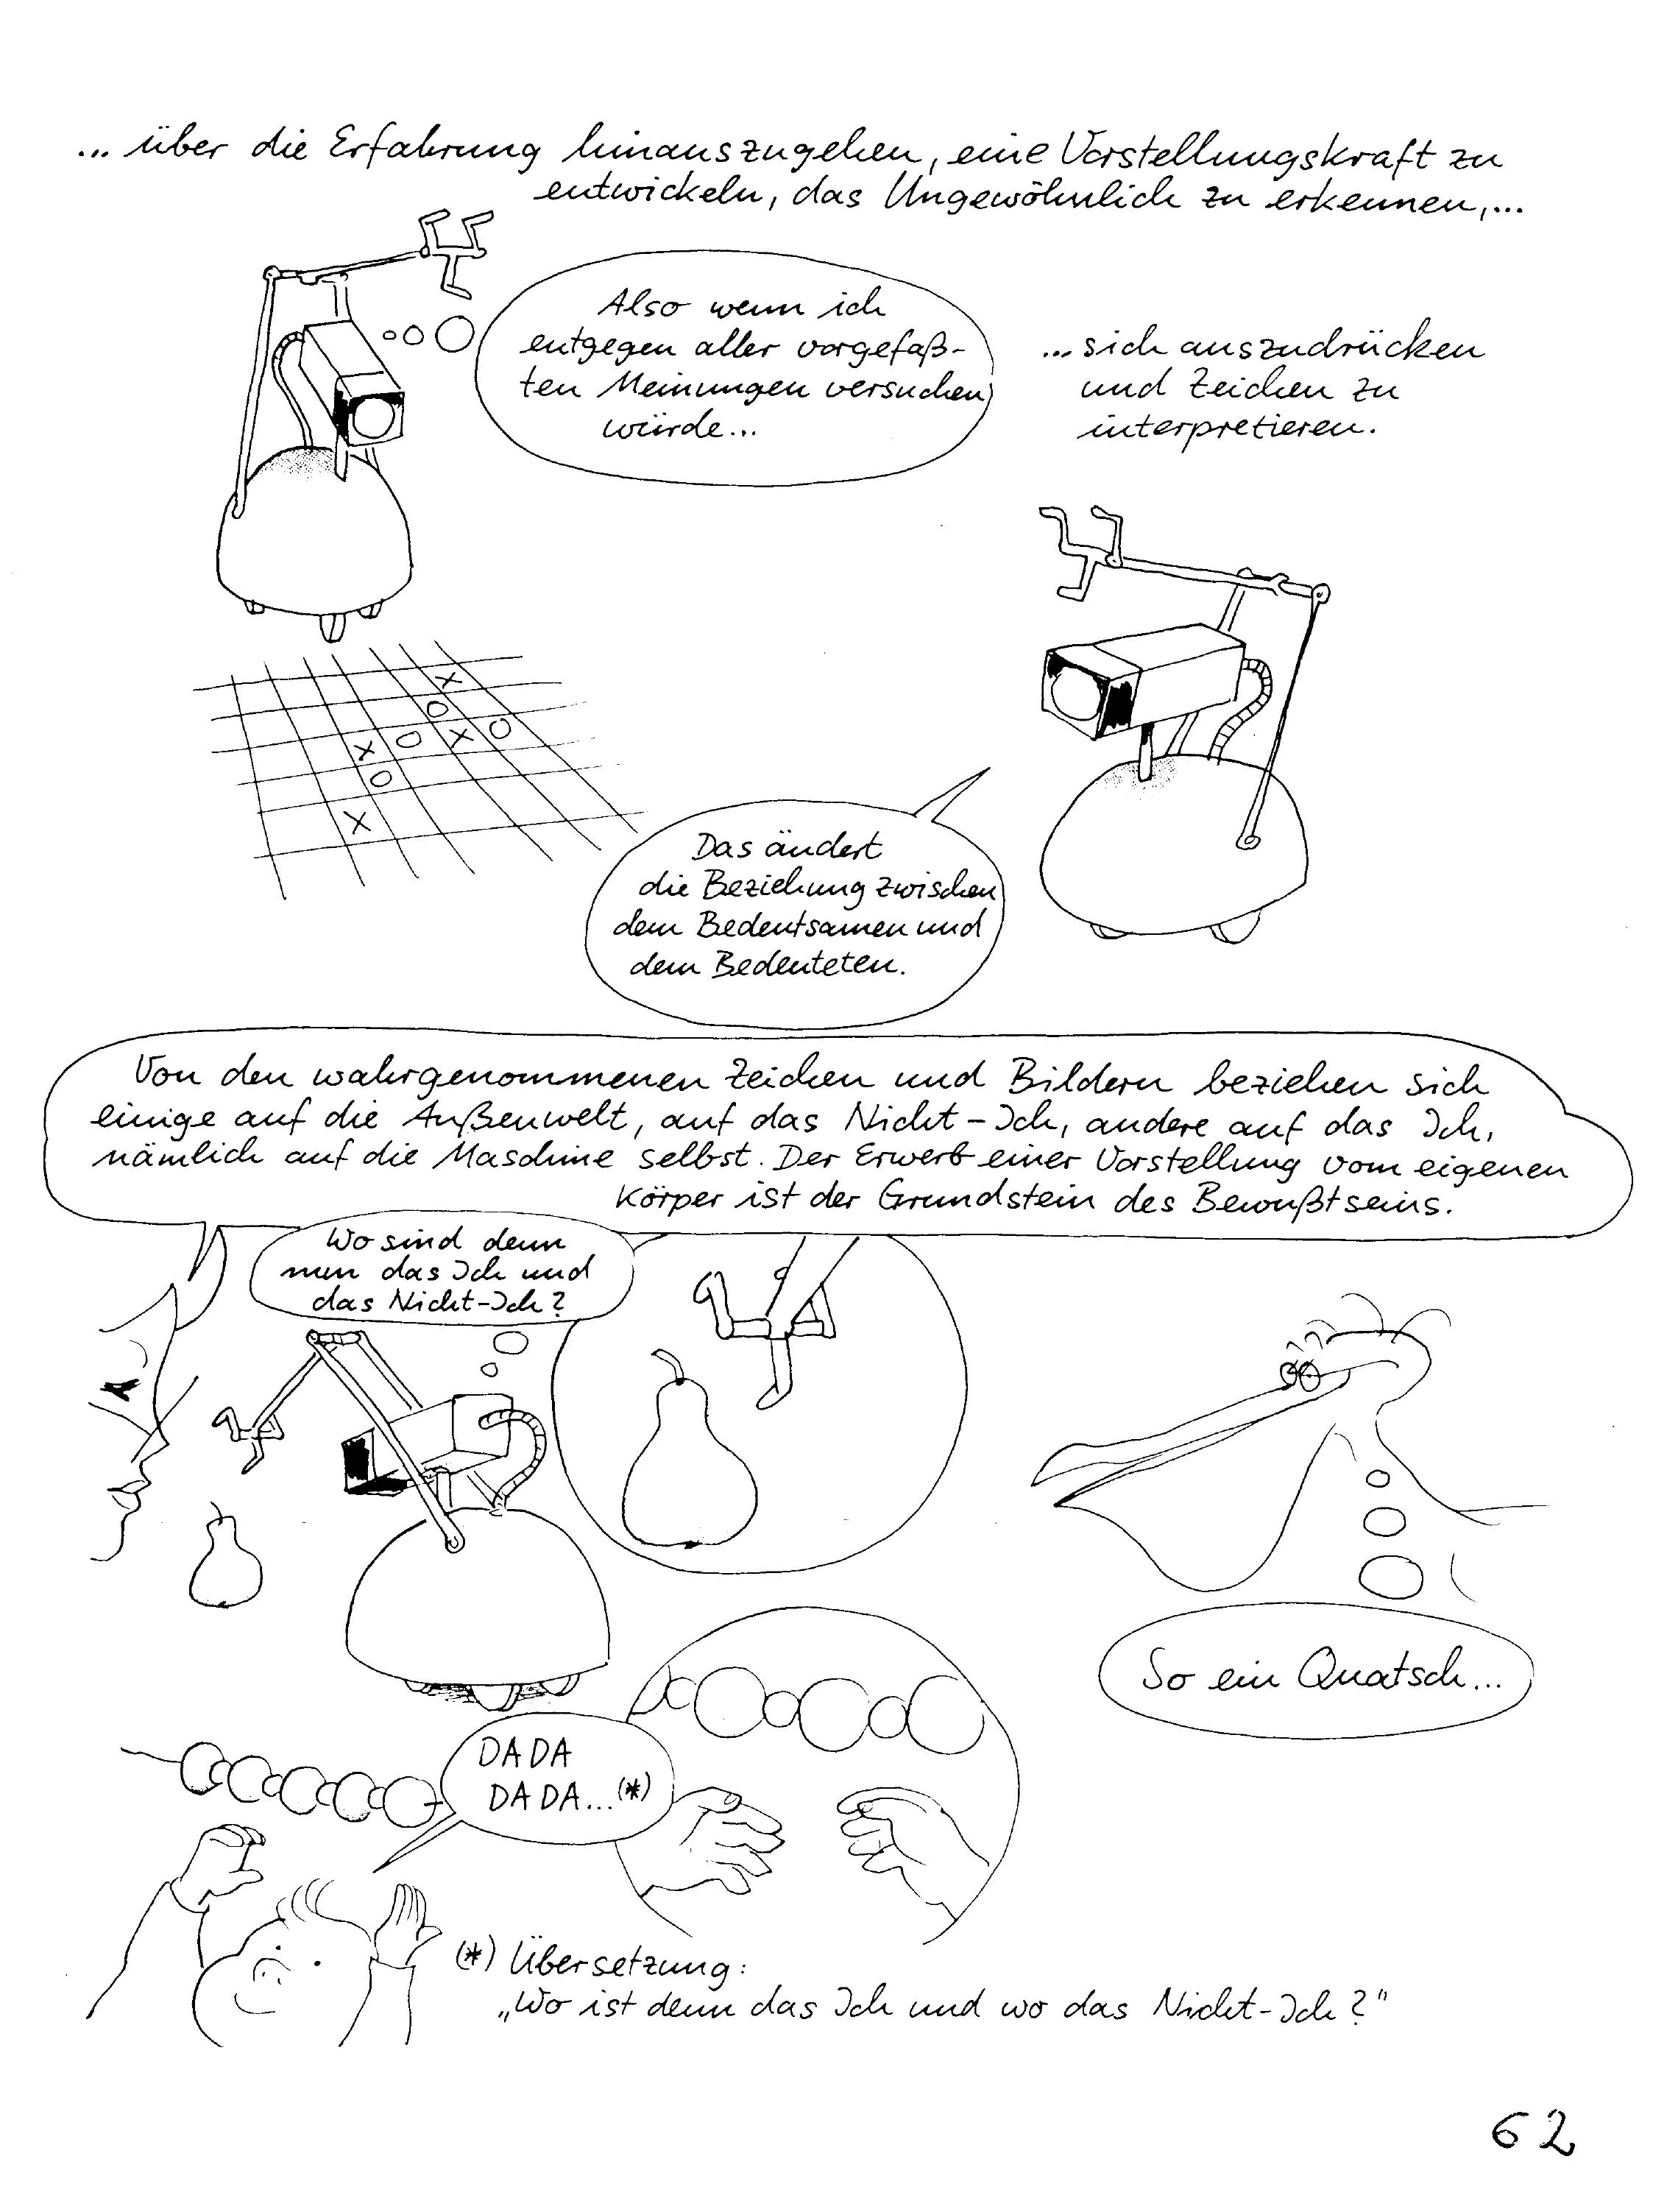 ... über die Erfahrung hinauszugehen, eine Vorstellungskraft zu
entwickeln, das Ungewöhnlich zu erkennen,...
Also wenn ich
entgegen aller vorgefaß-
ten Meinungen versuchen
würde...
... sich auszudrücken
und Zeichen zu
interpretieren.
X
O
X O X O
O
X
Das ändert
die Beziehung zwischen
dem Bedeutsamen und
dem Bedeuteten.
Von den wahrgenommenen Zeichen und Bildern beziehen sich
einige auf die Außenwelt, auf das Nicht-Ich, andere auf das Ich,
nämlich auf die Maschine selbst. Der Erwerb einer Vorstellung vom eigenen
Körper ist der Grundstein des Bewußtseins.
Wo sind denn
nun das Ich und
das Nicht-Ich?
So ein Quatsch...
DADA
DADA...(*)
(*) Übersetzung:
„Wo ist denn das Ich und wo das Nicht-Ich?"
62